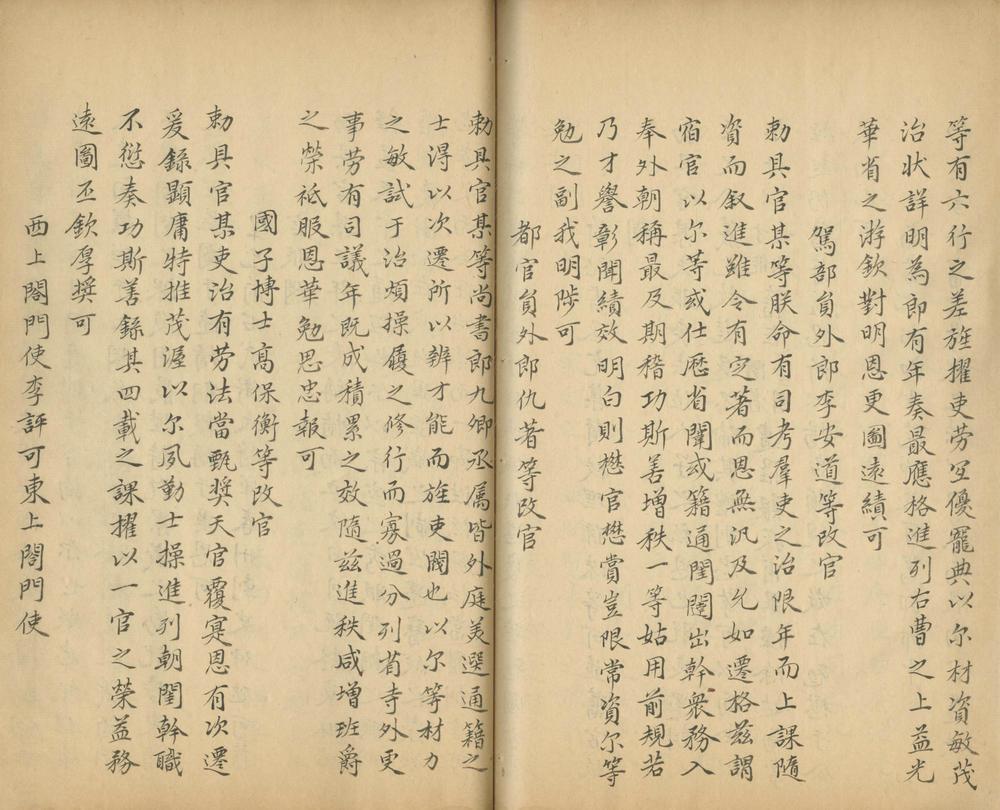 等有六行之差旌擢吏劳宜優寵典以尔材資敏茂
治状詳明為郎有年奏最應格進列右曹之上益光
華省之游欽對明恩更圖遠績可
駕部員外郎李安道等改官
勅具官某等朕命有司考羣吏之治限年而上課隨
資而叙進雖令有定著而恩無汎及允如遷格茲謂
宿官以尔等或仕歷省闈或籍通閨闥出幹衆務入
奉外朝稱最及期稽功斯善增秩一等姑用前規若
乃才譽彰聞績效明白則懋官懋賞豈限常資尔等
勉之副我明陟可
都官員外郎仇著等改官
勅具官某等尚書郎九卿丞属皆外庭美選通籍之
士得以次遷所以辨才能而旌吏閥也以尔等材力
之敏試于治煩操履之修行而寡過分列省寺外更
事劳有司議年既成積累之效隨茲進秩咸增班爵
之榮祗服恩華勉思忠報可
國子博士高保衡等改官
勅具官某吏治有劳法當甄奨天官覆寔恩有次遷
爰録顯庸特推茂渥以尔夙勤士操進列朝閨幹職
不愆奏功斯善繇其四載之課擢以一官之榮益務
遠圖丕欽厚奨可
西上閤門使李評可東上閤門使